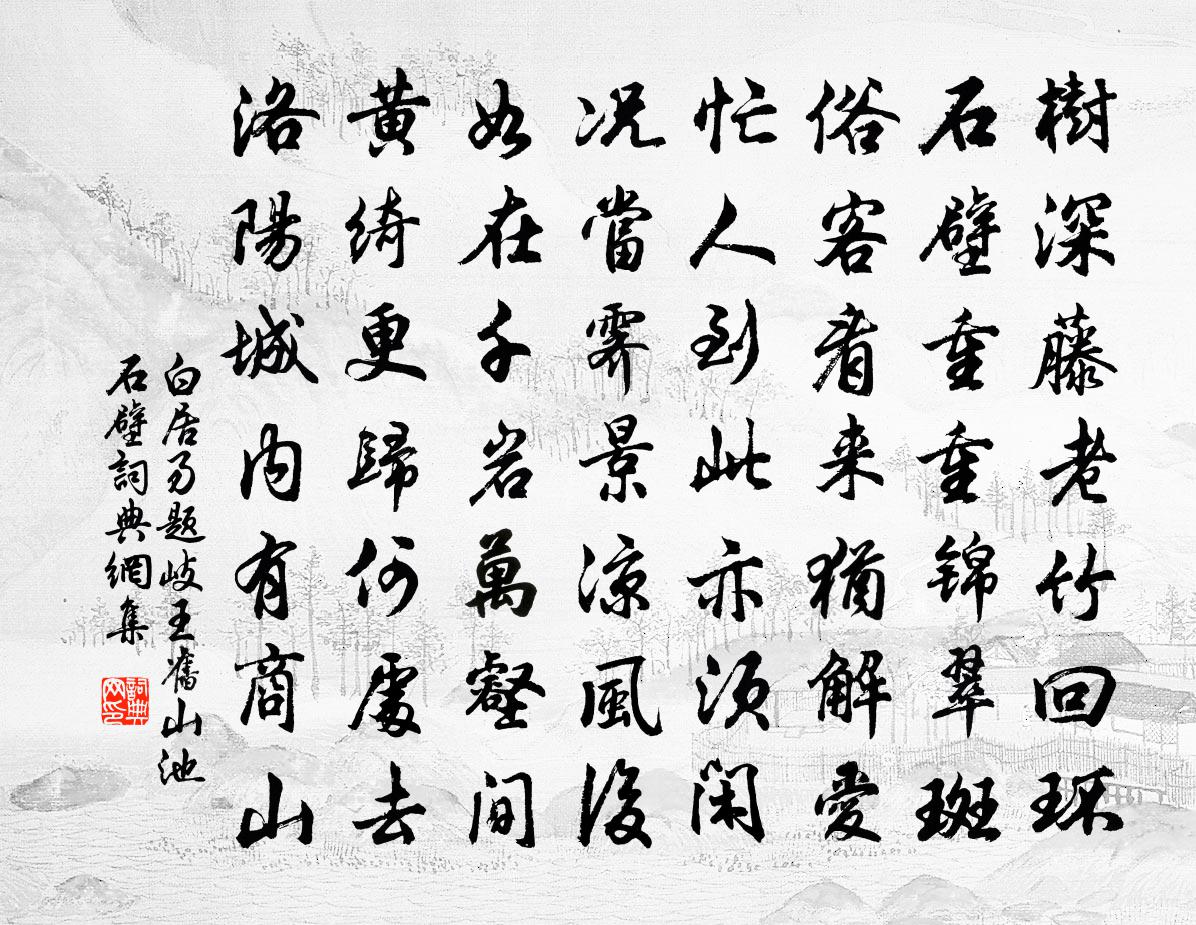 樹深藤老竹回环
石壁重重锦翠斑
俗客看来猶解愛
忙人到此亦须闲
况當霽景凉風後
如在千岩萬壑间
黄綺更歸何處去
洛陽城内有商山
白居易题岐王舊山池
石壁詞典網集
詞典
网印